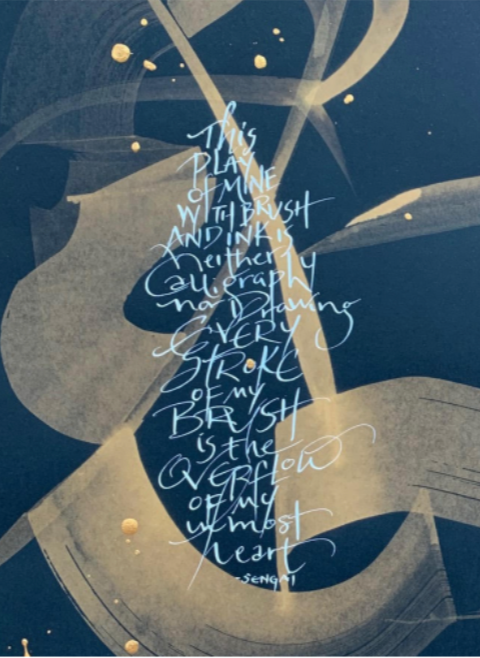 This
PLAY
of MINE
WITH BRUSH
AND iNK is
neither
Calligraphy
nor Drawing
EVERY
STROKE
OF my
BRUSH
is the
OVERfLOW
OF my
inmost
heart
-SENGAI